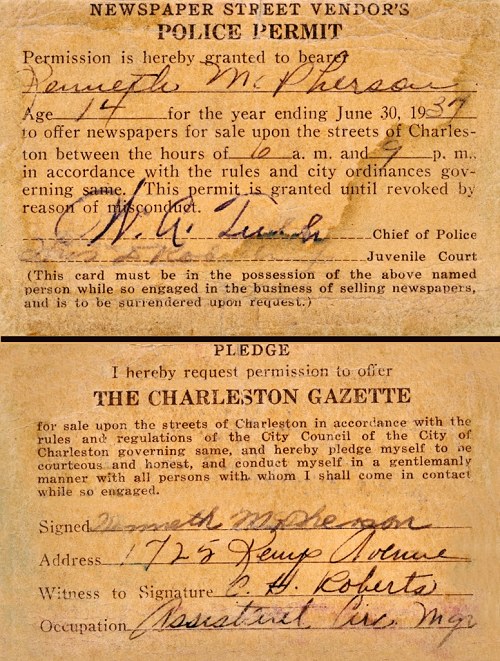 NEWSPAPER STREET VENDOR'S
POLICE PERMIT
Permission is hereby granted to bearer
Kenneth McPherson
Age 14 for the year ending June 30, 1937
to offer newspapers for sale upon the streets of Charles-
ton between the hours of 6 a. m. and 9 p. m.,
in accordance with the rules and city ordinances gov-
erning same. This permit is granted until revoked by
reason of misconduct.
Chief of Police
Juvenile Court
(This card must be in the possession of the above named
person while so engaged in the business of selling newspapers,
and is to be surrendered upon request.)
PLEDGE
I hereby request permission to offer
THE CHARLESTON GAZETTE
for sale upon the streets of Charleston in accordance with the
rules and regulations of the City Council of the City of
Charleston governing same, and hereby pledge myself to be
courteous and honest, and conduct myself in a gentlemanly
manner with all persons with whom I shall come in contact
while so engaged.
Signed Kenneth McPherson
Address 1725 Avenue
Witness to Signature C. H. Roberts
Occupation Assistant Circ. Mgr